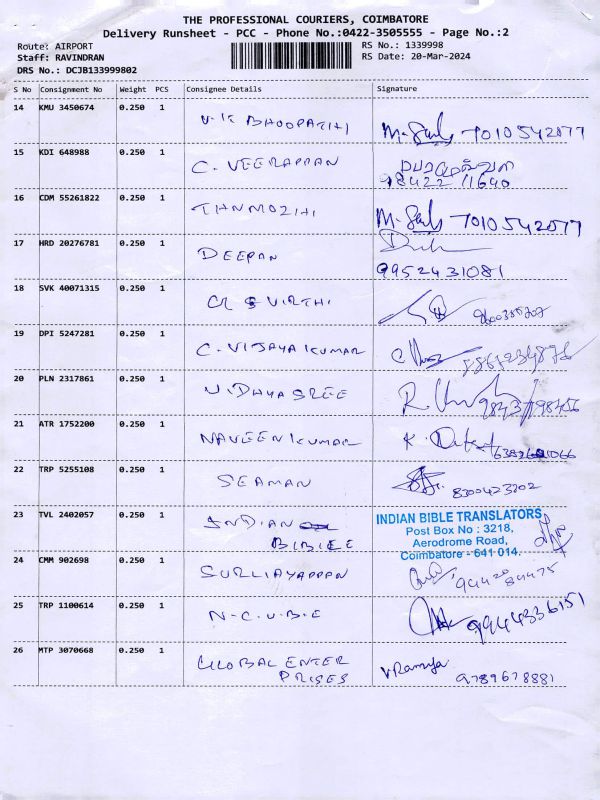 THE PROFESSIONAL COURIERS, COIMBATORE
Delivery Runsheet - PCC - Phone No.:0422-3505555 - Page No.:2
Route: AIRPORT
Staff: RAVINDRAN
DRS No.: DCJB133999802
RS No.: 1339998
RS Date: 20-Mar-2024
S No Consignment No Weight PCS Consignee Details Signature
14 KMU 3450674 0.250 1 V.K BHOOPATHI 7010542077
15 KDI 648988 0.250 1 C. VEERAPPAN
98422 11640
16 CDM 55261822 0.250 1 THNMOZHI 7010542077
17 HRD 20276781 0.250 1 DEEPAN
9952431081
18 SVK 40071315 0.250 1
19 DPI 5247281 0.250 1 C. VIJAYA KUMAR
20 PLN 2317861 0.250 1 VIDHYASREE
21 ATR 1752200 0.250 1 NAVEEN KUMAR
22 TRP 5255108 0.250 1 SEAMAN 8300423202
23 TVL 2402057 0.250 1 INDIAN
INDIAN BIBLE TRANSLATORS
Post Box No : 3218,
Aerodrome Road,
Coimbatore - 641 014.
24 CMM 902698 0.250 1 94420 84475
25 TRP 1100614 0.250 1 N-C.U.B.E 9944336151
26 MTP 3070668 0.250 1 GLOBAL ENTER V Ramya
PRISES 9789678881